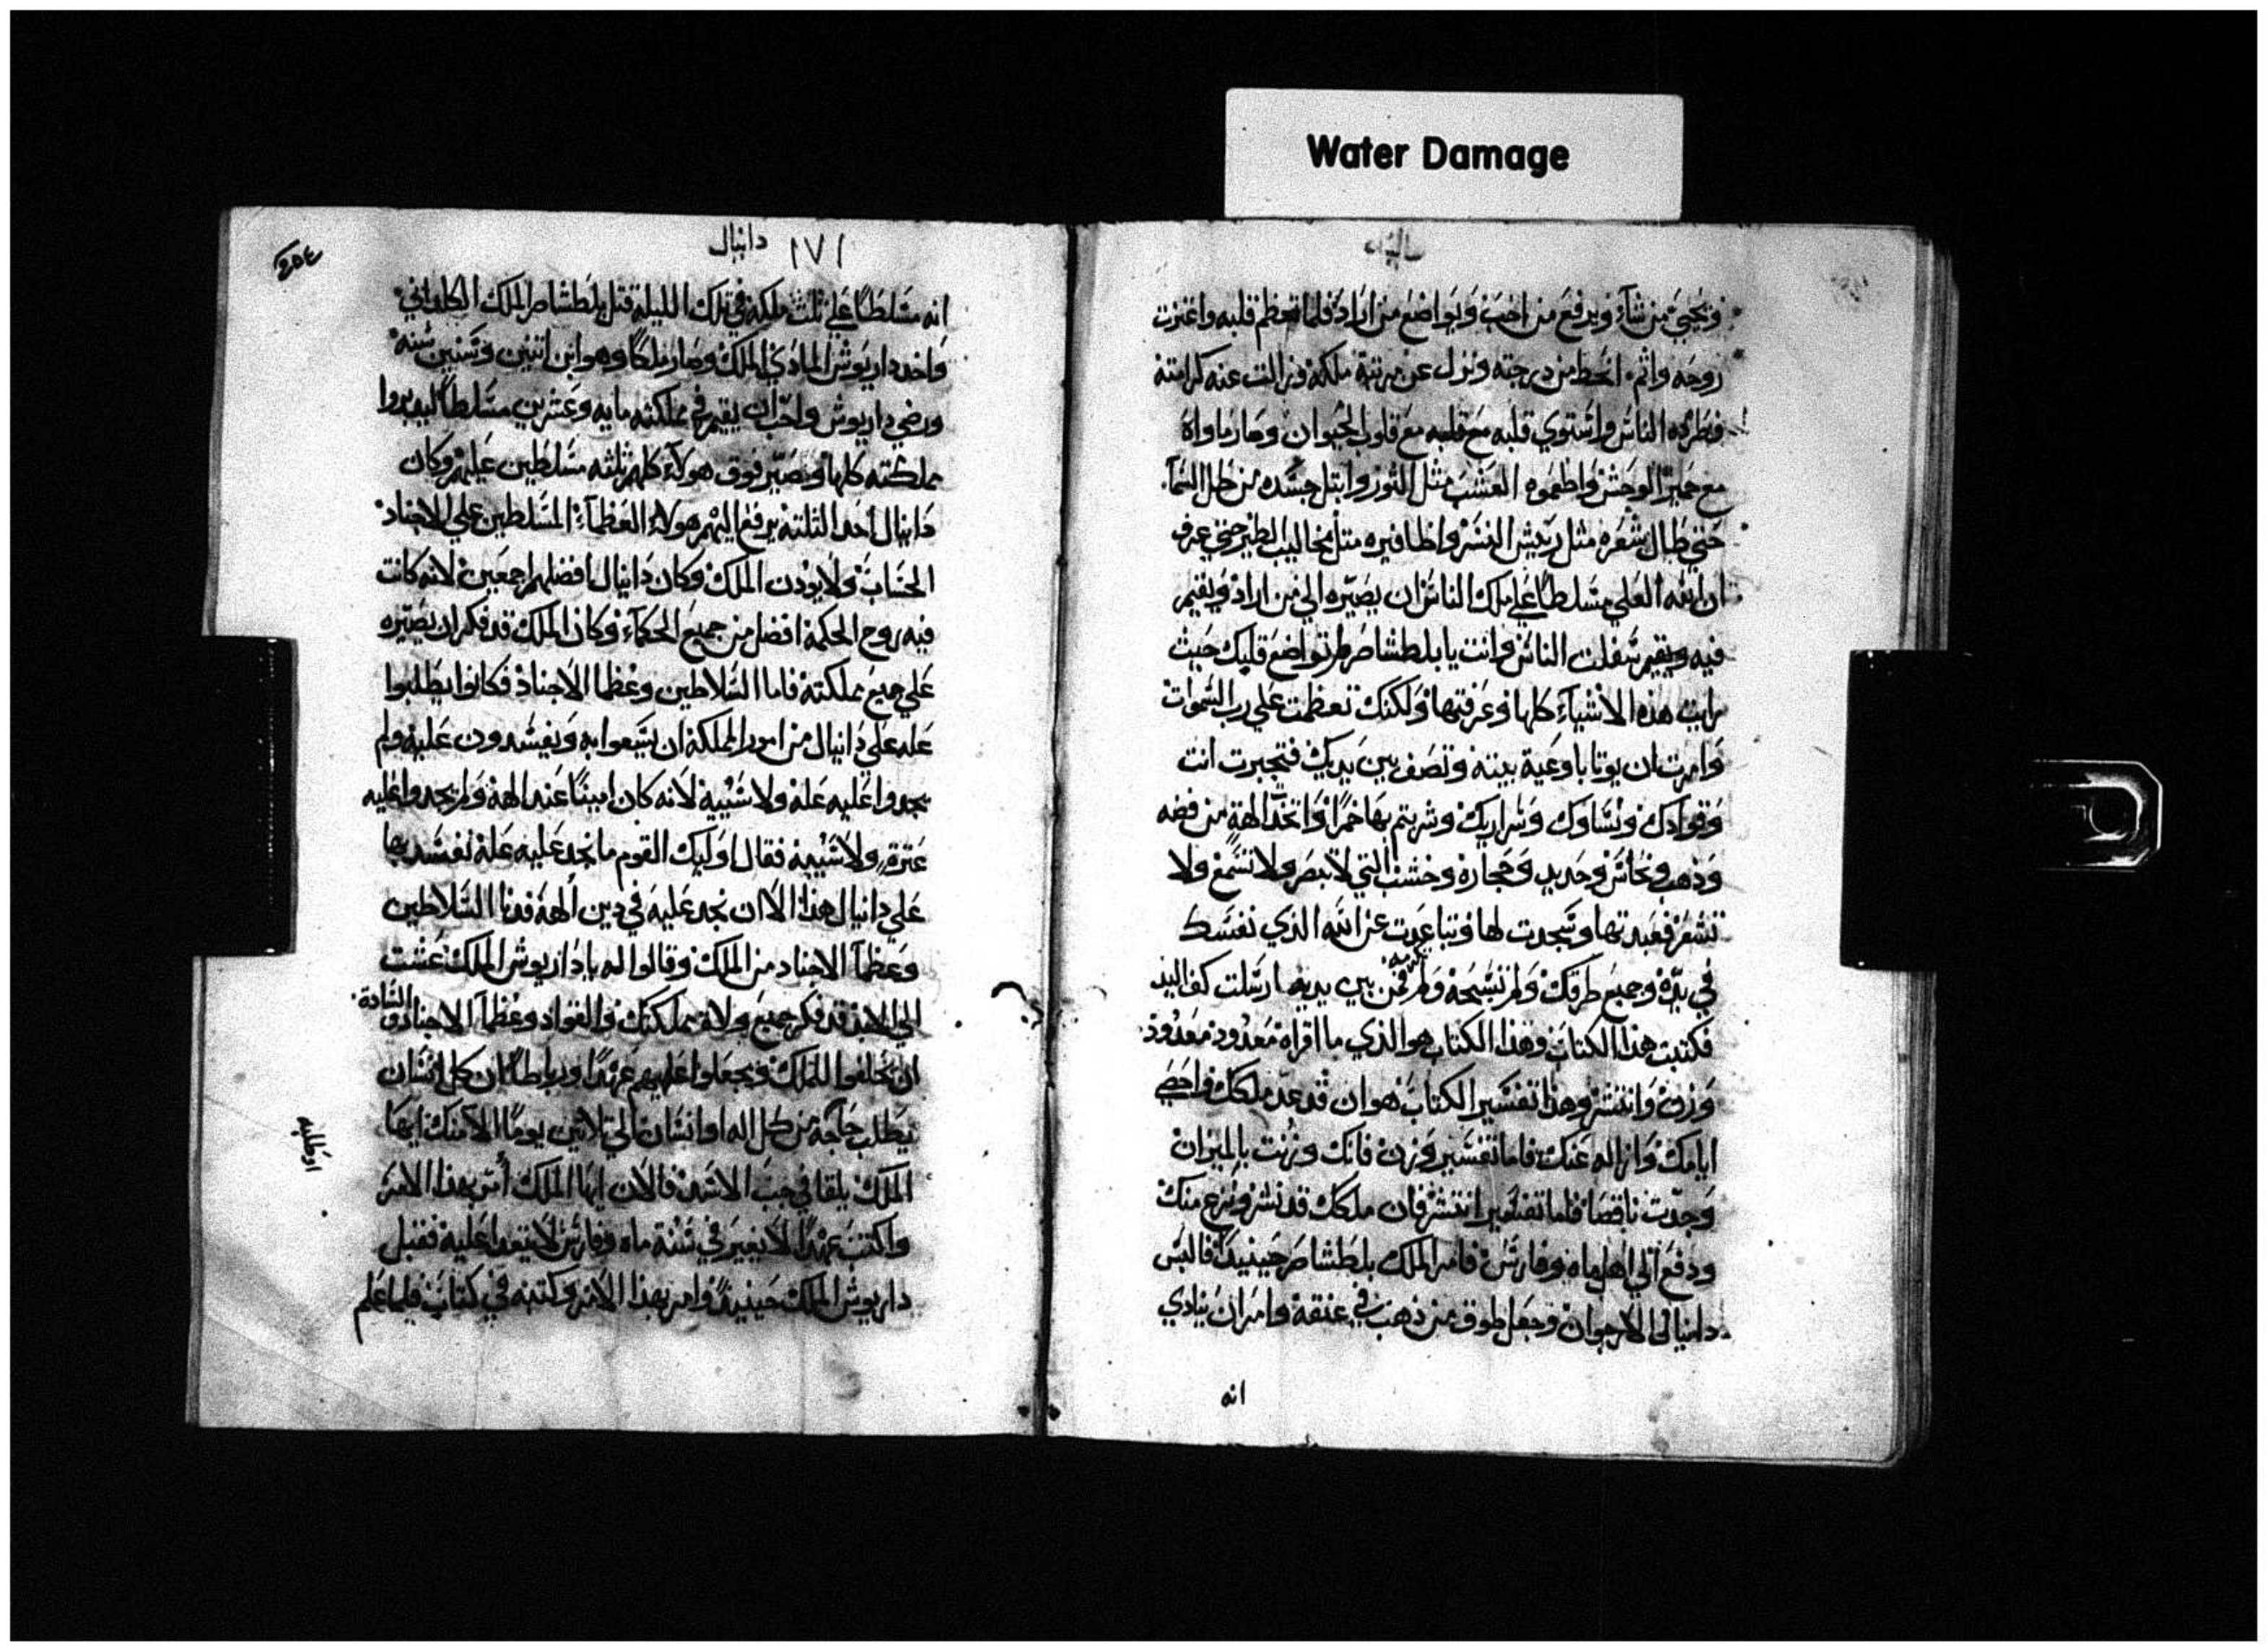 Water Damage
ويحيي من شآء ويرفع من احب ويواضع من اراد فلما تعظم قلبه واعتزت
روحه واثم انحط من درجته ونزل عن مرتبة ملكه وزالت عنه كرامته
فطرده الناس واستوي قلبه مع قلبه مع قلوب الحيوان وصار ماواه
مع حمير الوحش واطعموه العشب مثل الثور وابتل جسده من طل السمآ
حتي طال شعره مثل ريش النسر واظافيره مثل مخاليب الطير حتي عرف
ان الله العلي مسلطًا علي ملك الناس ان يصيره الي من اراد ويقيم
فيه ويقيم سفلت الناس وانت يا بلطشاصر لم تواضع قلبك حيث
رايت هذه الاشيآء كلها وعرفتها ولكنك تعظمت علي رب السموات
وامرت ان يوتا باوعية بيته وتصف بين يديك فتجبرت انت
وقوادك ونساوك وسراريك وشربتم بها خمرًا واتخذ الهة من فضه
وذهب ونحاس وحديد وحجارة وخشب التي لا تبصر ولا تسمع ولا
تشعر فعبدتها وسجدت لها وتباعدت عن الله الذي نفسك
في يده وجميع طرقك ولم تسبحه ولم بين يديه ارسلت كف اليد
فكتبت هذا الكتاب وهذا الكتاب هو الذي ما اقراه معدود معدود
وزن وانتشر وهذا تفسير الكتاب هو ان قد عد ملكك واحصي
ايامك وازاله عنك فاما تفسير وزن فانك وزنت بالميزان
وجدت ناقصا فاما تفسير انتشر فان ملكك قد نشر ونزع منك
ودفع الي اهل ماه وفارس فامر الملك بلطشاصر حينيذ فالبس
دانيال الارجوان وجعل طوق من ذهب في عنقه وامر ان ينادي
انه
١٧١ دانيال
انه مسلطًا علي ثلث ملكه في تلك الليلة قتل بلطشاصر الملك الكلداني
واخذ داريوش المادي الملك وصار ملكًا وهو ابن اثنين وستين سنه
ورضي داريوش واحب ان يقيم في مملكته مايه وعشرين مسلطًا ليدبروا
مملكته كلها وتصير فوق هولآء كلهم ثلثه مسلطين عليهم وكان
دانيال احد الثلثة يرفع اليهم هولاء العظمآء المسلطين علي الاجناد
الحساب ولا يوذن الملك وكان دانيال افضلهم اجمعين لانه كانت
فيه روح الحكمة افضل من جميع الحكمآء وكان الملك قد فكر ان يصيره
علي جميع مملكته فاما السلاطين وعظما الاجناد فكانوا يطلبوا
عله علي دانيال من امور المملكة ان يتبعوا به ويفسدون عليه ولم
يجدوا عليه علة ولا شبيه لانه كان امينًا عند الهه ولم يجدوا عليه
عثرةٍ ولا شبيهة فقال اوليك القوم ما نجد عليه علة نفسد بها
علي دانيال هذا الا ان نجد عليه في دين الهه فدنا السلاطين
وعظمآ الاجناد من الملك وقالوا له يا داريوش الملك عشت
الي الابد قد فكر جميع ولاة مملكتك والقواد وعظمآ الاجناد والسادة
ان يحلفوا للملك ويجعلوا عليهم عهدًا ورباطًا ان كل انسان
يطلب حاجة من كل اله او انسان الي ثلاثين يومًا الا منك ايها
الملك يلقا في جب الاسد فالان ايها الملك أمر بهذا الامر
واكتب عهدًا لا يغير في سنة ماه وفارس لا يتعدا عليه فقبل
داريوش الملك حينيذ وامر بهذا الامر وكتبه في كتاب فلما علم
او طلبه